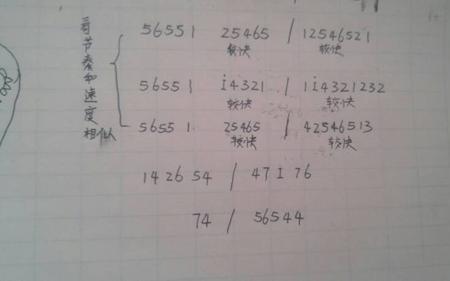 音节奏和速度相似
56551 25465 / 12546521
较快 较快
56551 i4321 / 1i4321232
较快 较快
56551 25465 / 42546513
较快 较快
142654 / 47176
74 / 56544